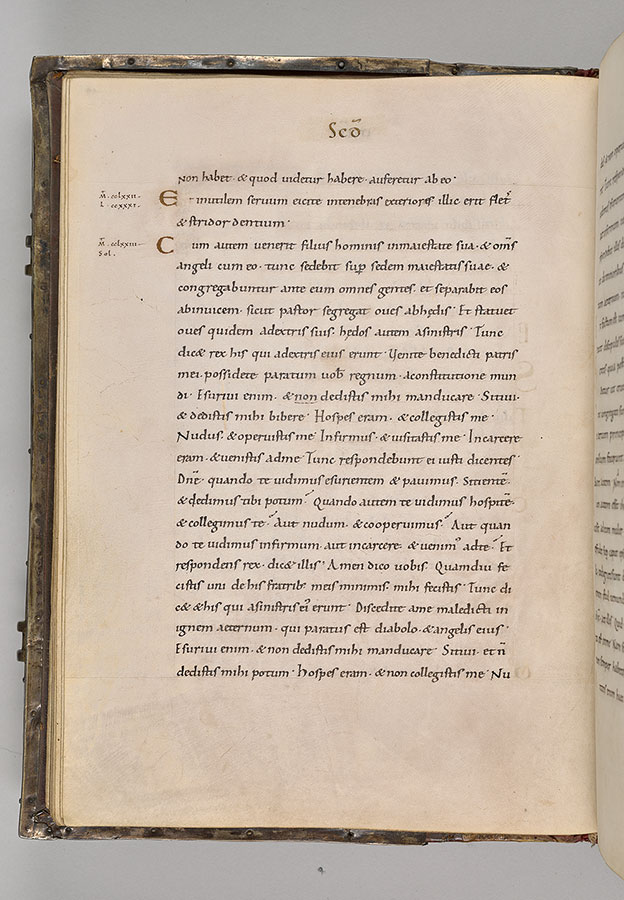 Scđ
non habet · & quod uidetur habere · auferetur ab eo ·
M̄. cclxxii.
L. ccxxxi.
Et inutilem seruum eicite intenebras exteriores illic erit flet᷒
& stridor dentium ·
M̄. cclxxiii
Sol.
Cum autem uenerit filius hominis inmaiestate sua · & om̄s
angeli cum eo · tunc sedebit sup sedem maiestatis suae · &
congregabuntur ante eum omnes gentes · et separabit eos
abinuicem · sicut pastor segregat oues abhędis · Et statuet
oues quidem adextris suis · hędos autem asinistris · Tunc
dic& rex his qui adextris eius erunt · Uenite benedicti patris
mei · possidete paratum uob̄ regnum · aconstitutione mun
di · Esuriui enim · & non dedistis mihi manducare · Sitiui ·
& dedistis mihi bibere · Hospes eram · & collegistis me ·
Nudus · & operuistis me · Infirmus · & uisitastis me · Incarcere
eram · & uenistis adme · Tunc respondebunt ei iusti dicentes ·
Dn̄e · quando te uidimus esurientem & pauimus · Sitientē ·
& dedimus tibi potum · Quando autem te uidimus hospitē ·
& collegimus te · Aut nudum · & cooperuimus · Aut quan
do te uidimus infirmum · aut incarcere · & uenim᷒ adte · Et
respondens rex · dic& illis · Amen dico uobis · Quamdiu fe
cistis uni de his fratrib᷒ meis minimis · mihi fecistis · Tunc di
c& & his qui asinistris ei᷒ erunt · Discedite ame maledicti in
ignem aeternum · qui paratus est diabolo · & angelis eius ·
Esuriui enim · & non dedistis mihi manducare · Sitiui · et n̄
dedistis mihi potum · hospes eram · & non collegistis me · Nu